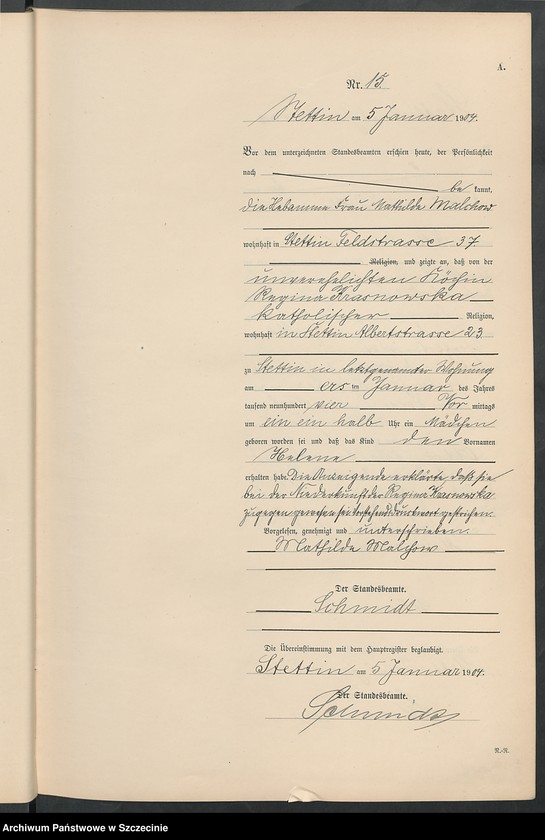 A.
Nr. 15.
Stettin am 5 Januar 1904.
Vor dem unterzeichneten Standesbeamten erschien heute, der Persönlichkeit
nach
be kannt,
die Hebamme Frau Mathilde Malchow
wohnhaft in Stettin Feldstrasse 37
Religion, und zeigte an, daß von der
unverehelichten Köchin
Regina Krasnowska
katholischer Religion,
wohnhaft in Stettin Albertstrasse 23
zu Stettin in letztgenannter Wohnung
am ersten Januar des Jahres
tausend neunhundert vier Vor mittags
um ein ein halb Uhr ein Mädchen
geboren worden sei und daß das Kind den Vornamen
Helene
erhalten habe. Die Anzeigende erklärte, daß sie
bei der Niederkunft der Regina Krasnowska
zugegen gewesen sei. Vorstehend 1 Druckwort gestrichen.
Vorgelesen, genehmigt und unterschrieben.
Mathilde Malchow
Der Standesbeamte.
Schmidt
Die Übereinstimmung mit dem Hauptregister beglaubigt.
Stettin am 5 Januar 1904.
Der Standesbeamte.
Schmidt
Archiwum Państwowe w Szczecinie